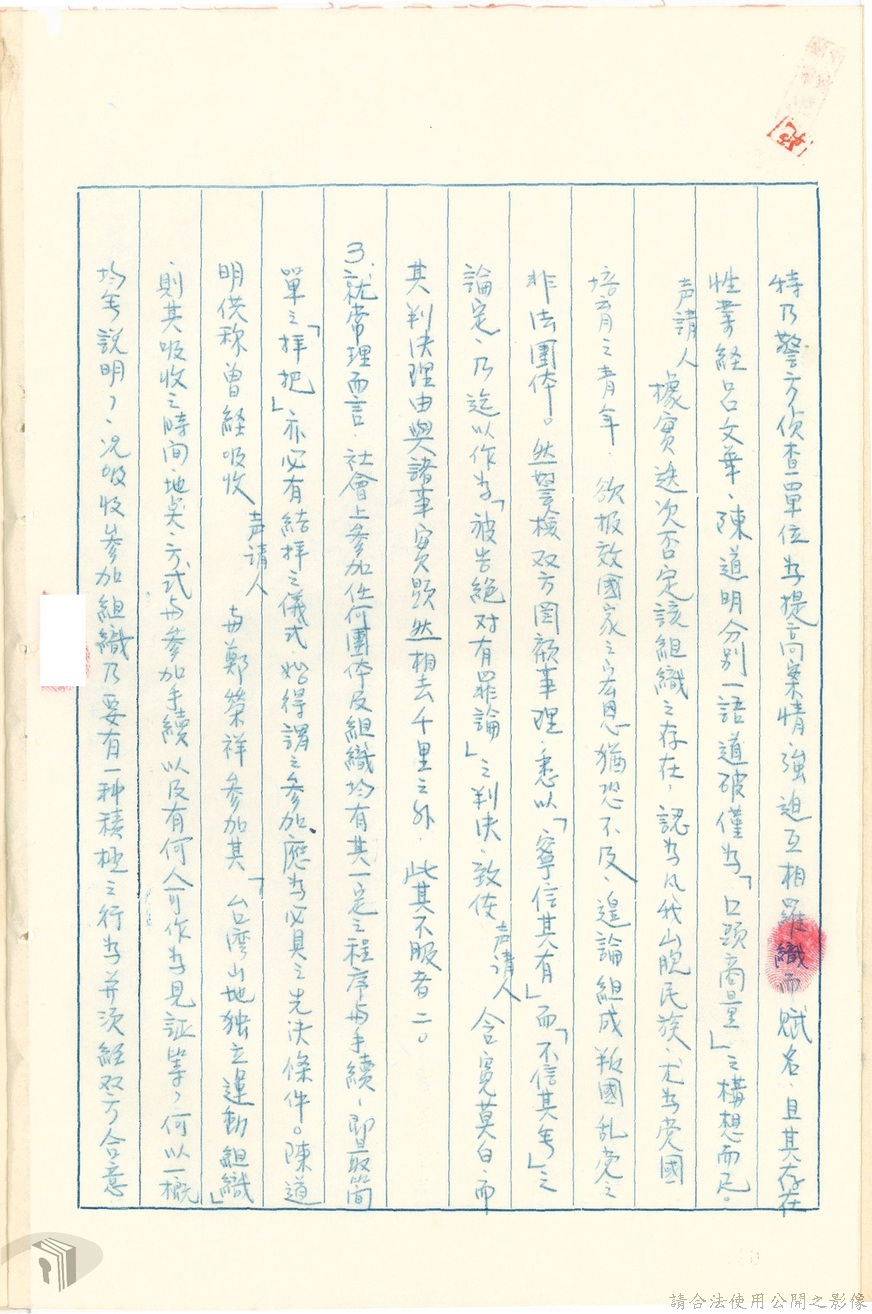 特乃警方偵查單位為提高案情、強迫互相羅織而賦名、且其存在
性業経呂文華、陳道明分別一語道破僅為「口頭商量」之構想而已。
声請人據實迭次否定該組織之存在，認為凡我山胞民族、尤為党國
培育之青年、欲报效國家之宏恩猶恐不及、遑論組成叛國乱党之
非法團体。然警檢双方罔顧事理、悉以「寧信其有」而「不信其無」之
論定、乃迄以作為「被告絕对有罪論」之判決、致使声請人含寃莫白、而
其判決理由與諸事實顯然相去千里之外、此其不服者二。
3.就常理而言、社會上參加任何團体及組織均有其一定之程序與手續、即最簡
單之「拜把」亦必有結拜之儀式、始得謂之參加、應為必具之先決條件。陳道
明供称曾経吸收声請人與鄭榮祥參加其「台灣山地独立運動組織」
則其吸收之時间、地点、方式與參加手續以及有何人可作為見証等，何以一概
均無說明，況吸收參加組織乃要有一种積極之行為并須経双方合意
請合法使用公開之影像